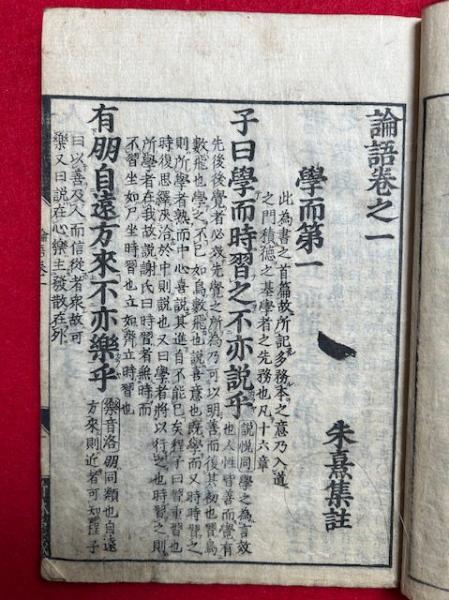 論語卷之一
朱熹集註
學而第一
此為書之首篇故所記多務本之意乃入道
之門積德之基學者之先務也凡十六章
子曰學而時習之不亦說乎
說悅同學之為言效
也人性皆善而覺有
先後後覺者必效先覺之所為乃可以明善而復其初也習鳥
數飛也學之不已如鳥數飛也說喜意也既學而又時時習之
則所學者熟而中心喜說其進自不能已矣程子曰習重習也
時復思繹浹洽於中則說也又曰學者將以行之也時習之則
所學者在我故說謝氏曰時習者無時而
不習坐如尸坐時習也立如齊立時習也
有朋自遠方來不亦樂乎
樂音洛朋同類也自遠
方來則近者可知程子
曰以善及人而信從者衆故可
樂又曰說在心樂主發散在外
論語卷一